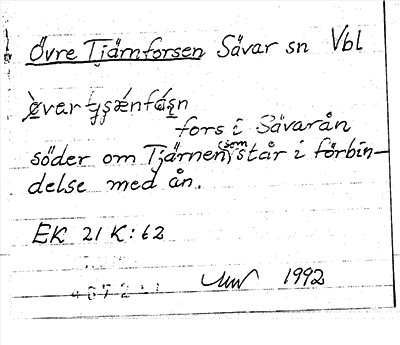 Övre Tjärnforsen Sävar sn Vbl
fors i Sävarån
söder om Tjärnen, (som) står i förbin-
delse med ån.
EK 21 K:62
1992